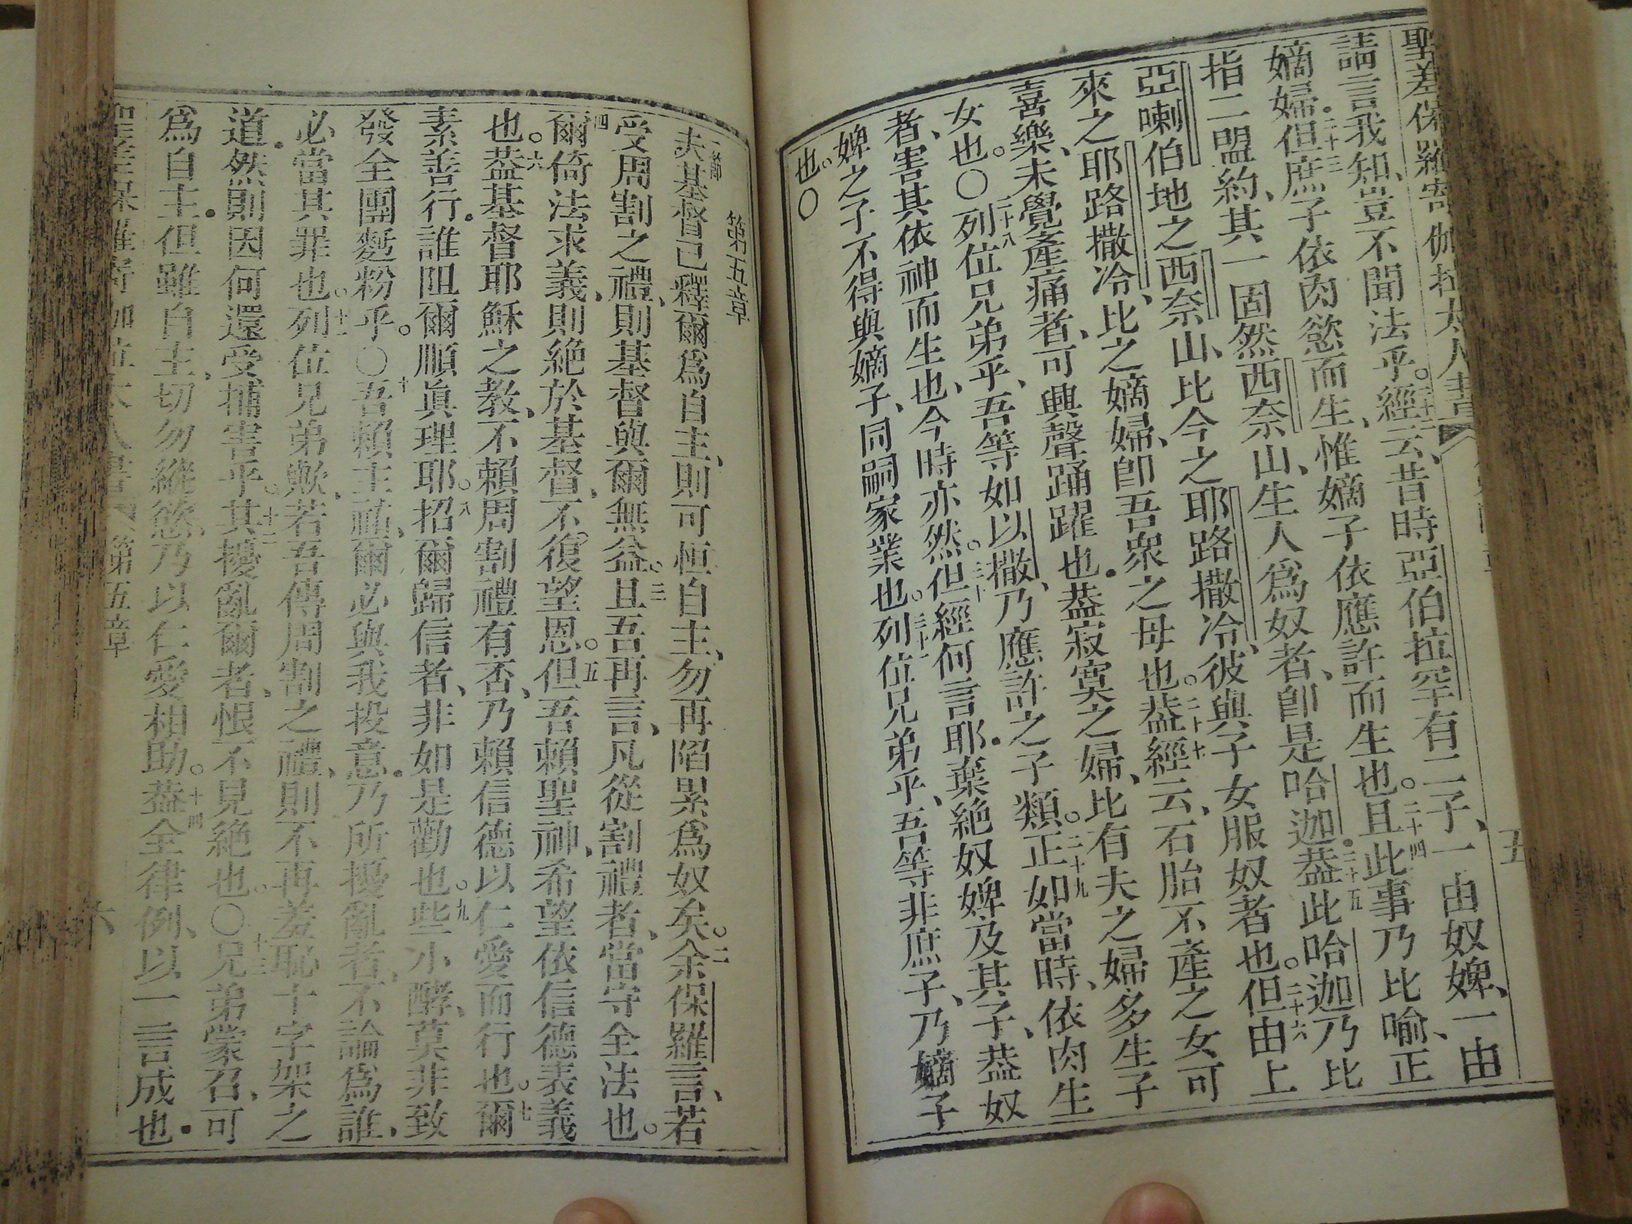 聖差保羅寄伽拉太人書
五
請言我知、豈不聞法乎。二十二經云、昔時亞伯拉罕有二子、一由奴婢、一由
嫡婦.二十三但庶子依肉慾而生、惟嫡子依應許而生也。二十四且此事乃比喻、正
指二盟約、其一固然西奈山、生人爲奴者、卽是哈迦.二十五葢此哈迦乃比
亞喇伯地之西奈山、比今之耶路撒冷、彼與子女服奴者也。二十六但由上
來之耶路撒冷、比之嫡婦、卽吾衆之母也。二十七葢經云、石胎不產之女可
喜樂、未覺產痛者、可興聲踊躍也.葢寂寞之婦、比有夫之婦多生子
女也。〇二十八列位兄弟乎、吾等如以撒、乃應許之子類。二十九正如當時、依肉生
者、害其依神而生也、今時亦然。三十但經何言耶.棄絕奴婢及其子、葢奴
婢之子不得與嫡子、同嗣家業也。三十一列位兄弟乎、吾等非庶子、乃嫡子
也。〇
第五章
一節夫基督已釋爾爲自主、則可恒自主、勿再陷累爲奴矣。二余保羅言、若
受周割之禮、則基督與爾無益。三且吾再言、凡從割禮者、當守全法也。
四爾倚法求義、則絕於基督、不復望恩。五但吾賴聖神、希望依信德表義
也。六葢基督耶穌之教、不賴周割禮有否、乃賴信德以仁愛而行也。七爾
素善行.誰阻爾順眞理耶。八招爾歸信者、非如是勸也。九些小酵、莫非致
發全團麪粉乎。〇十吾賴主祐、爾必與我投意.乃所擾亂者、不論爲誰、
必當其罪也。十一列位兄弟歟、若吾傳周割之禮、則不再羞恥十字架之
道.然則因何還受捕害乎。十二其擾亂爾者、恨不見絕也。〇十三兄弟蒙召、可
爲自主.但雖自主、切勿縱慾、乃以仁愛相助。十四葢全律例、以一言成也.
聖差保羅寄伽拉太人書 第五章 六